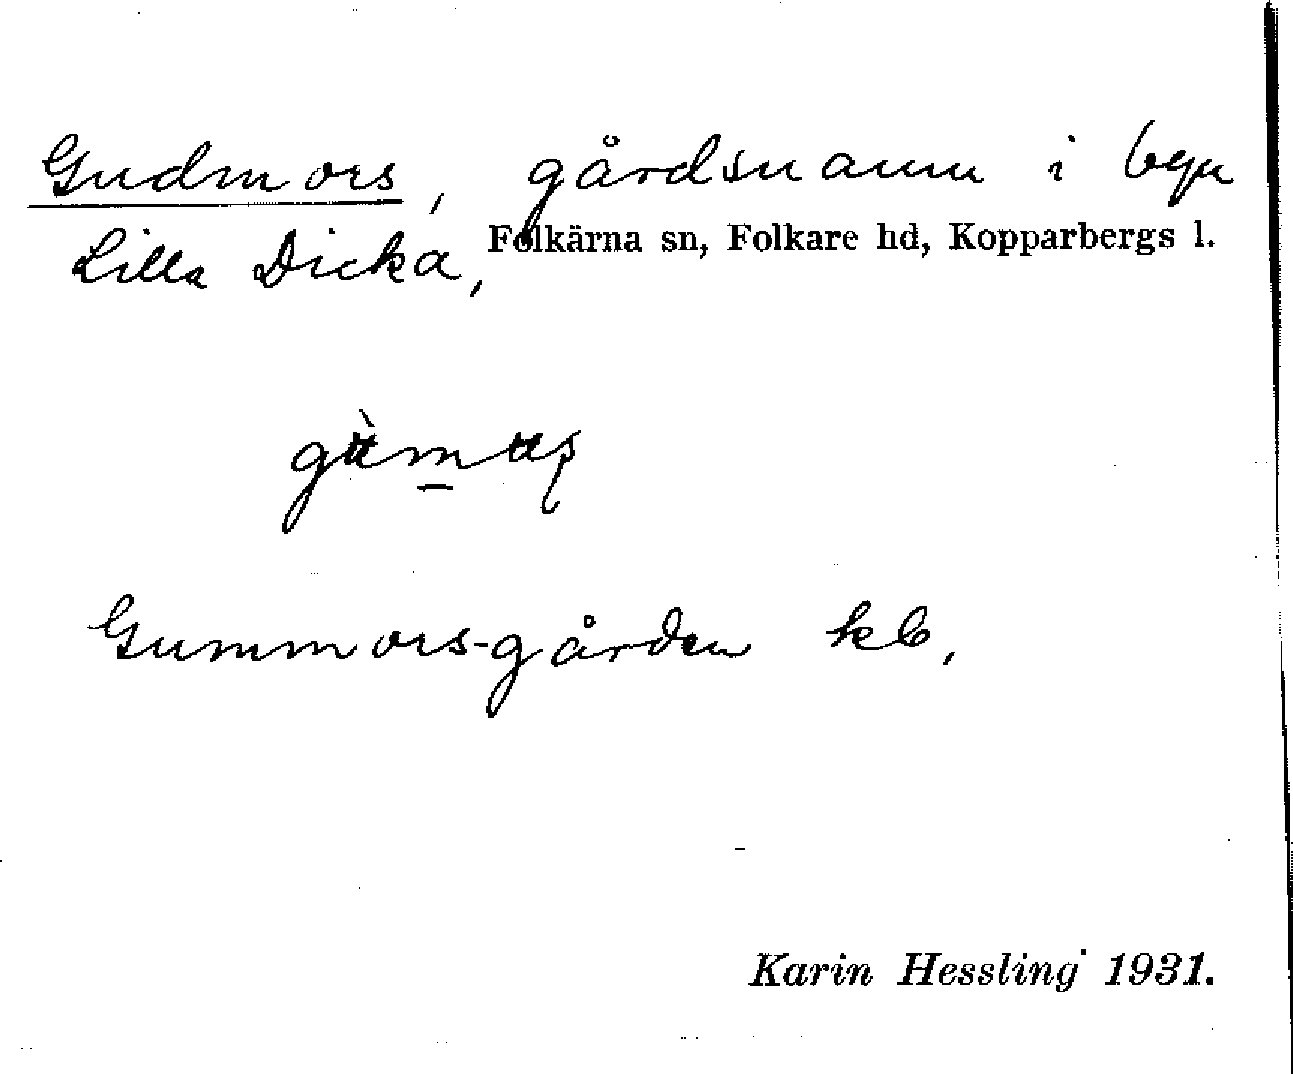 Gudmors, gårdsnamn i byn
Lilla Dicka, Folkärna sn, Folkare hd, Kopparbergs l.
Gummors-gården kb,
Karin Hessling 1931.